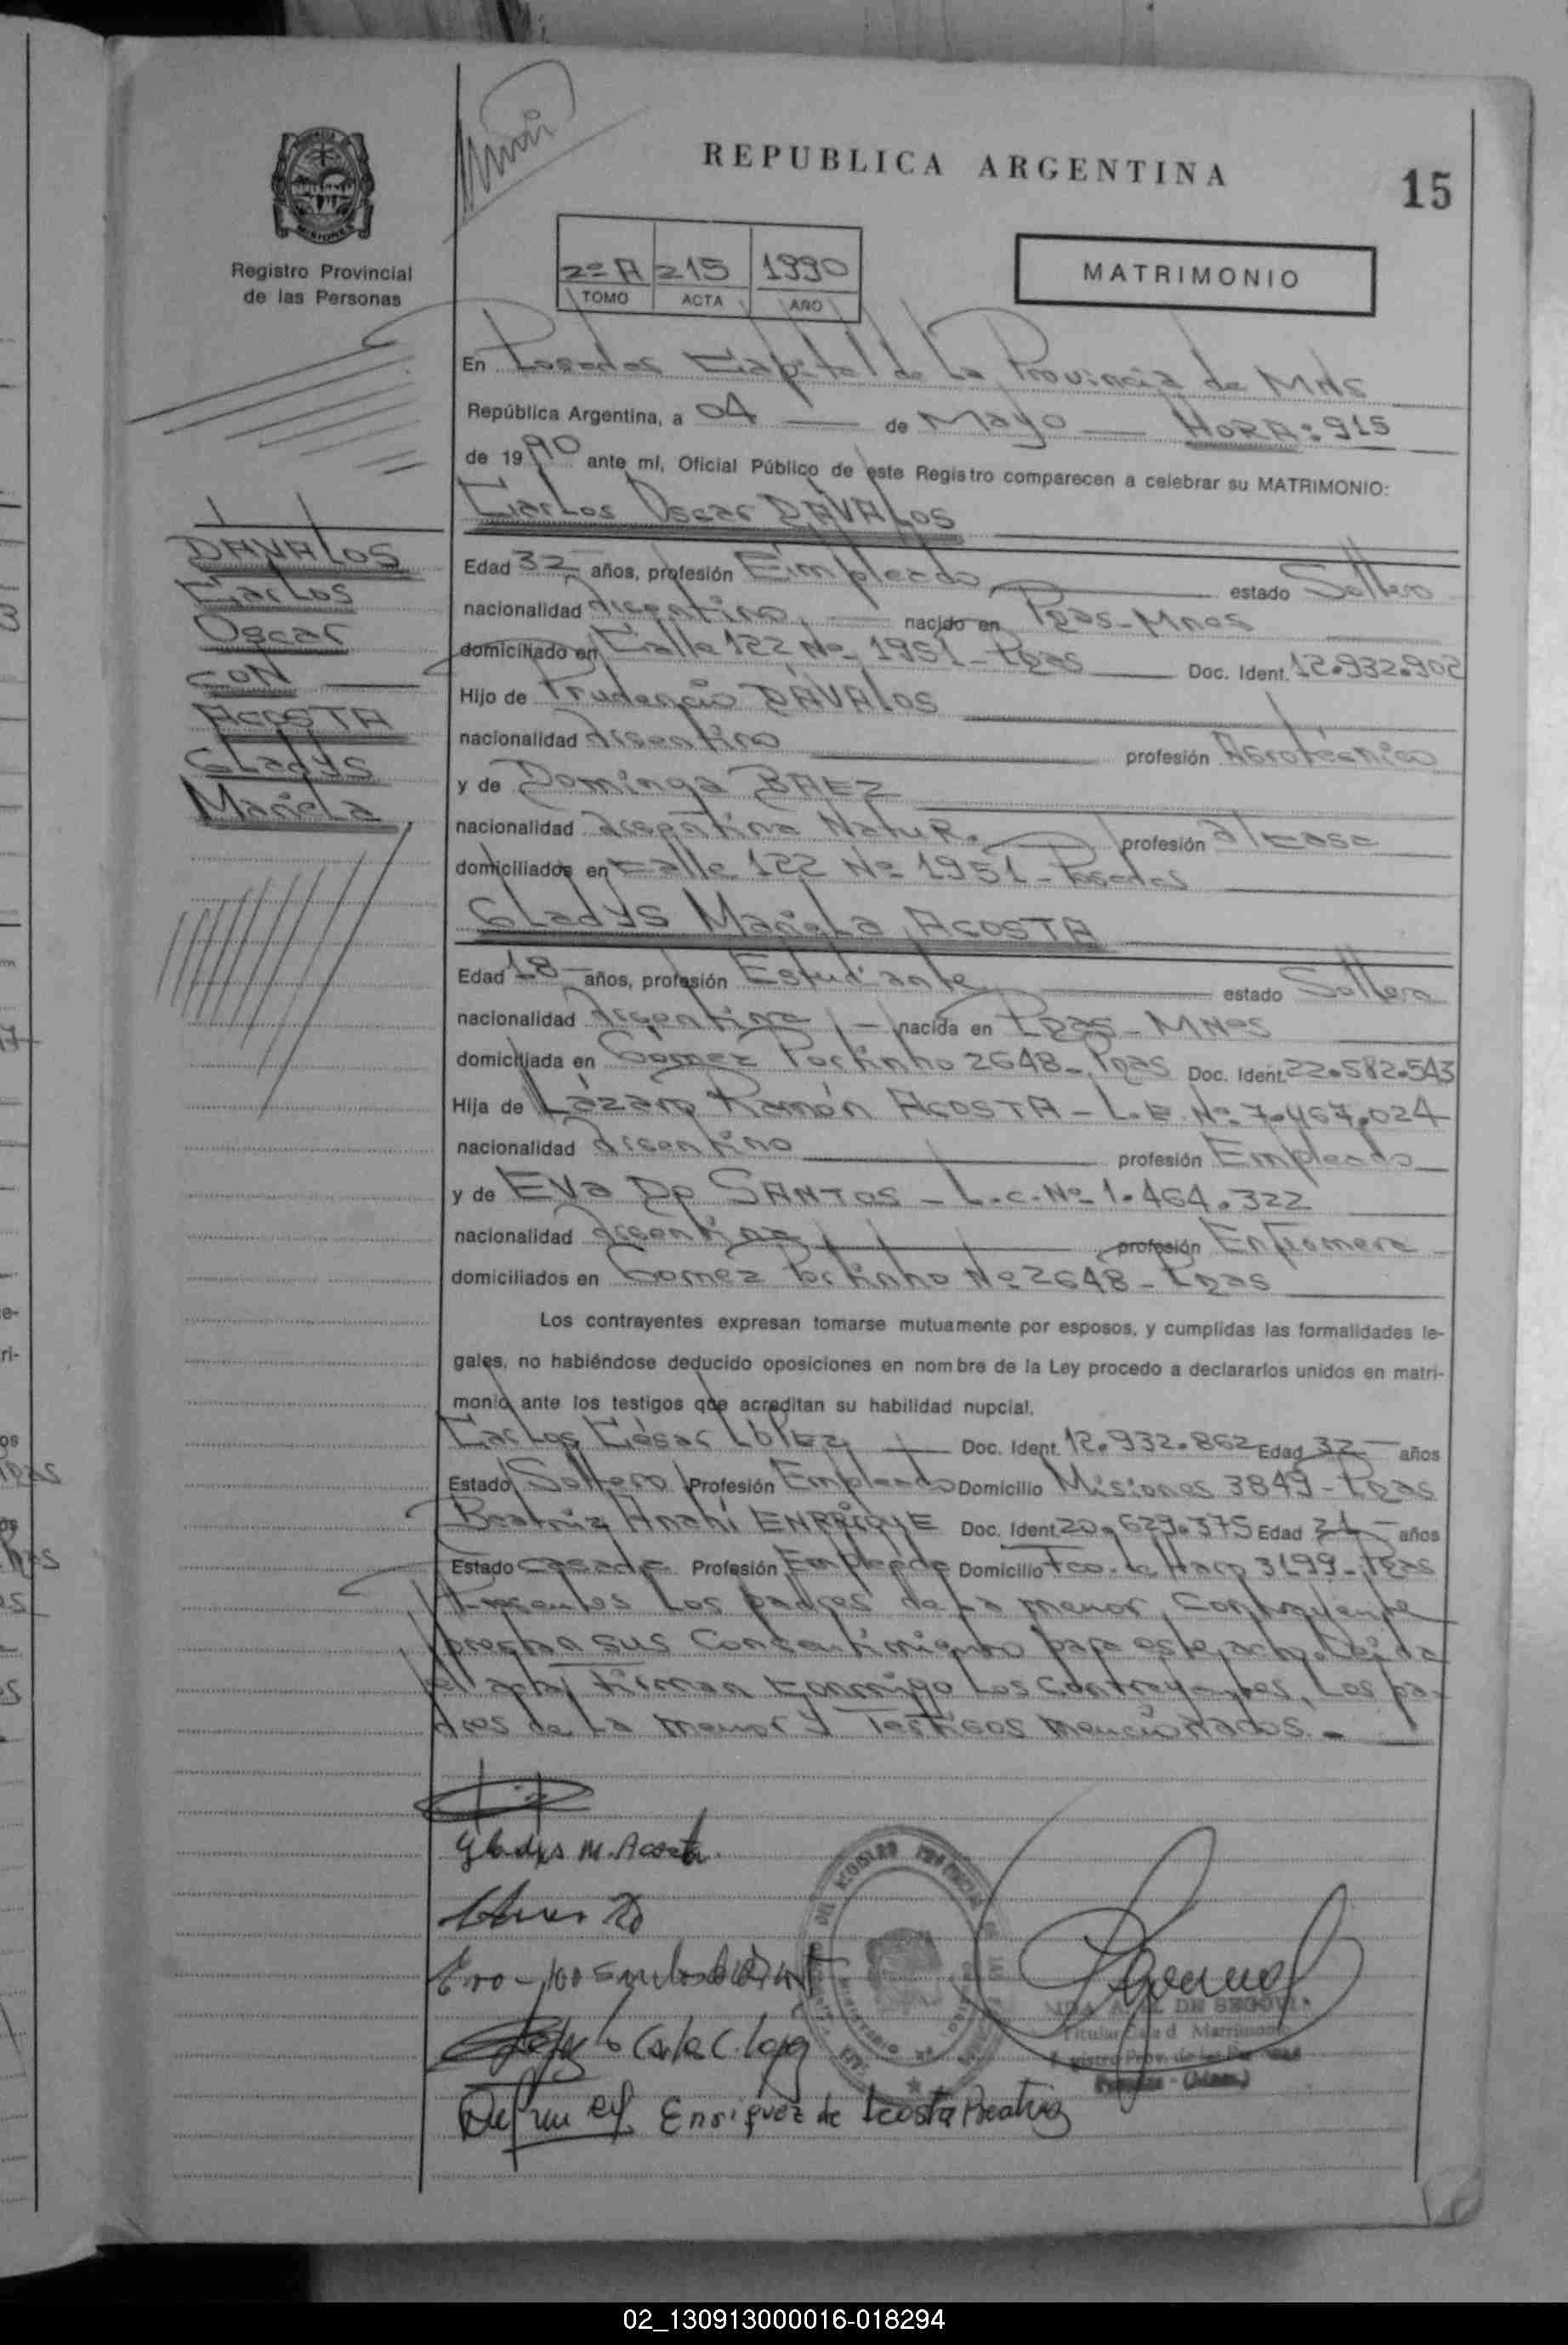 REPUBLICA ARGENTINA
15
MISIONES
Registro Provincial
de las Personas
2º A 215 1990
TOMO ACTA AÑO
MATRIMONIO
En Posadas Capital de La Provincia de Mns
República Argentina, a 04 de Mayo HORA: 915
de 1990 ante mí, Oficial Público de este Registro comparecen a celebrar su MATRIMONIO:
Carlos Oscar DÁVALOS
DAVALOS
Carlos
Oscar
CON
ACOSTA
Gladys
Mariela
Edad 32 años, profesión Empleado estado Soltero
nacionalidad Argentino nacido en Pdas-Mnes
domiciliado en Calle 122 Nº 1951-Pdas Doc. Ident. 12.932.902
Hijo de Prudencio DÁVALOS
nacionalidad Argentino profesión Agrotécnico
y de Dominga BAEZ
nacionalidad Argentina Natur. profesión
domiciliados en Calle 122 Nº 1951-Posadas
Gladys Mariela ACOSTA
Edad 18 años, profesión Estudiante estado Soltera
nacionalidad Argentina nacida en Pdas-MNes
domiciliada en Gómez Portinho 2648-Pdas Doc. Ident. 22.582.543
Hija de Lázaro Ramón ACOSTA - L.E. Nº 7.467.024
nacionalidad Argentino profesión Empleado
y de Eva Do SANTOS - L.C. Nº 1.464.322
nacionalidad Argentina profesión Enfermera
domiciliados en Gomez Portinho Nº 2648-Pdas
Los contrayentes expresan tomarse mutuamente por esposos, y cumplidas las formalidades le-
gales, no habiéndose deducido oposiciones en nombre de la Ley procedo a declararlos unidos en matri-
monio ante los testigos que acreditan su habilidad nupcial.
Carlos César LÓPEZ Doc. Ident. 12.932.862 Edad 32 años
Estado Soltero Profesión Empleado Domicilio Misiones 3849-Pdas
Beatriz Anahí Doc. Ident. 20.629.375 Edad 21 años
Estado casada Profesión Empleada Domicilio Fco. de Haro 3199-Pdas
Presentes Los padres de La menor contrayente
prestan sus Consentimiento para este acto. Leída
el acta, Firman Conmigo Los Contrayentes, Los pa-
dres de La menor y Testigos mencionados.-
Gladys M. Acosta
Carlos C. López
Enriquez de Acosta Beatriz
DE SEGOVIA
Titular d Matrimonio
02_130913000016-018294